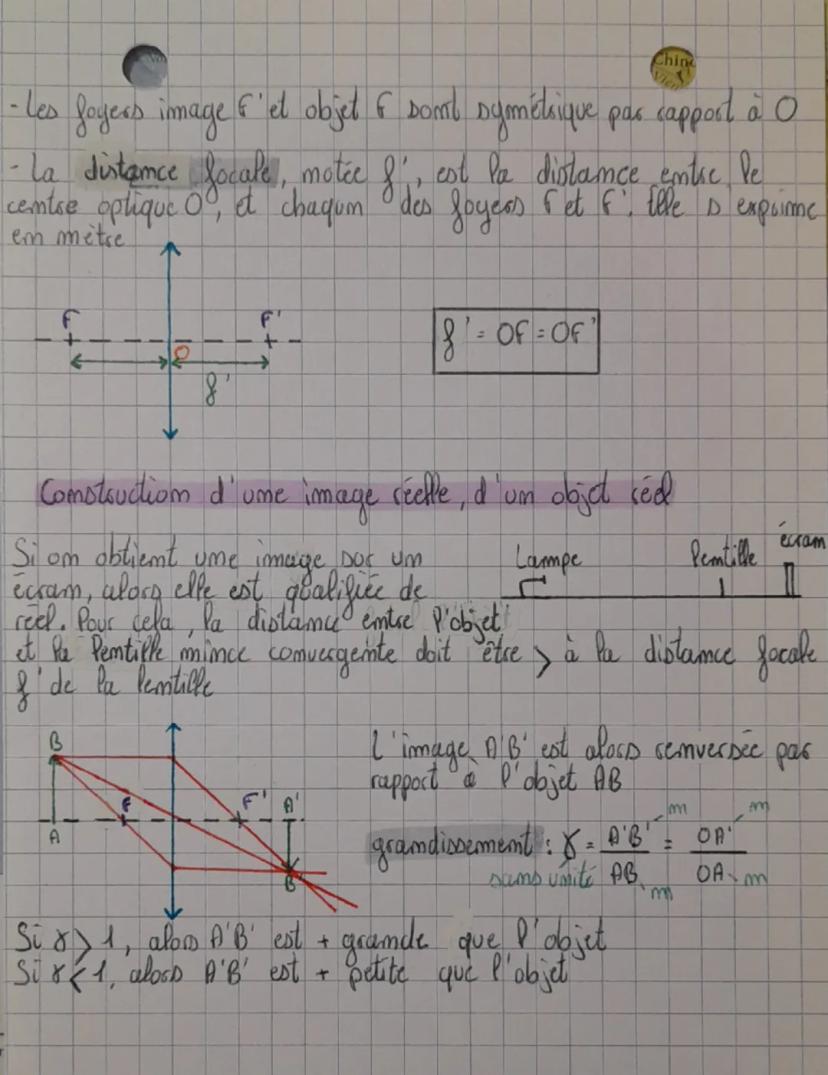 Chine
- Les foyers image F' et objet F sont symétrique par rapport à O
- La distance focale, notée f', est la distance entre le
centre optique O, et chaqun des foyers F et F'. Elle s'exprime
en mètre
F F'
O
f'
f' = OF = OF'
Construction d'une image réelle, d'un objet réel
Si on obtient une image sur un
écran, alors elle est qualifiée de
réel. Pour cela, la distance entre l'objet
et la lentille mince convergente doit être > à la distance focale
f' de la lentille
Lampe lentille écran
B
F F' A'
A
B'
L'image A'B' est alors renversée par
rapport à l'objet AB
grandissement : γ = A'B' / AB = OA' / OA
m m
sans unité m m
Si γ > 1, alors A'B' est + grande que l'objet
Si γ < 1, alors A'B' est + petite que l'objet